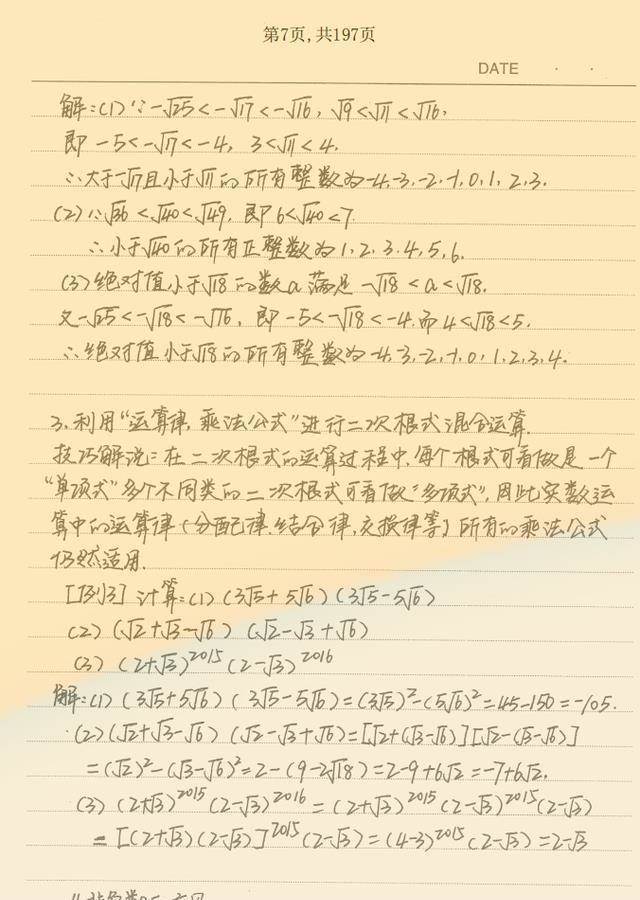 第7页,共197页
DATE · ·
解:(1)∵-√25<-√17<-√16, √9<√11<√16,
即 -5<-√17<-4, 3<√11<4.
∴大于-√17且小于√11的所有整数为-4,-3,-2,-1,0,1,2,3.
(2)∵√36<√40<√49, 即6<√40<7.
∴小于√40的所有正整数为1,2,3,4,5,6.
(3)绝对值小于√18的数a满足-√18<a<√18.
又-√25<-√18<-√16, 即-5<-√18<-4.而4<√18<5.
∴绝对值小于√18的所有整数为-4,-3,-2,-1,0,1,2,3,4.
3.利用“运算律,乘法公式”进行二次根式混合运算.
技巧解说:在二次根式的运算过程中,每个根式可看做是一个
“单项式”多个不同类的二次根式可看做“多项式”,因此实数运
算中的运算律(分配律,结合律,交换律等)所有的乘法公式
仍然适用.
[例3]计算:(1)(3√5+5√6)(3√5-5√6)
(2)(√2+√3-√6)(√2-√3+√6)
(3)(2+√3)²⁰¹⁵(2-√3)²⁰¹⁶
解:(1)(3√5+5√6)(3√5-5√6)=(3√5)²-(5√6)²=45-150=-105.
(2)(√2+√3-√6)(√2-√3+√6)=[√2+(√3-√6)][√2-(√3-√6)]
=(√2)²-(√3-√6)²=2-(9-2√18)=2-9+6√2=-7+6√2.
(3)(2+√3)²⁰¹⁵(2-√3)²⁰¹⁶=(2+√3)²⁰¹⁵(2-√3)²⁰¹⁵(2-√3)
=[(2+√3)(2-√3)]²⁰¹⁵(2-√3)=(4-3)²⁰¹⁵(2-√3)=2-√3